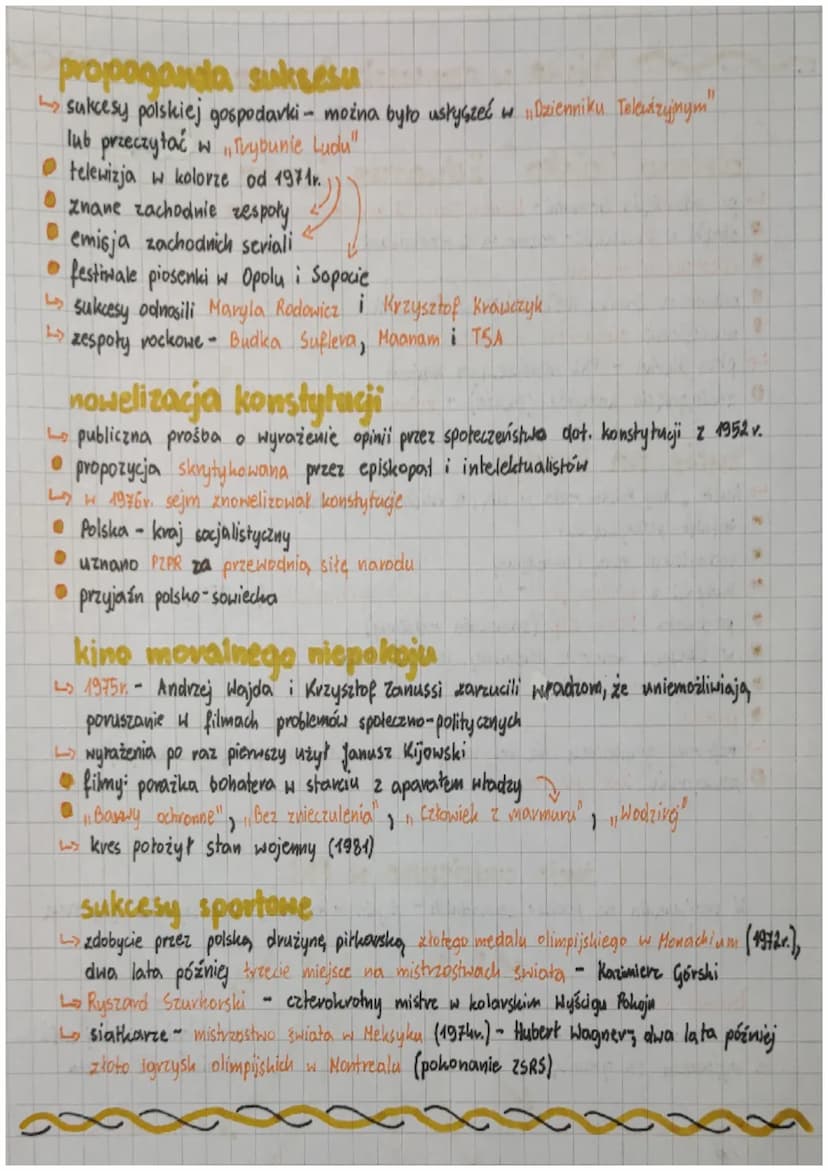 propaganda sukcesu
↳ sukcesy polskiej gospodarki - można było usłyszeć w „Dzienniku Telewizyjnym"
lub przeczytać w „Trybunie Ludu"
• telewizja w kolorze od 1971r.
• znane zachodnie zespoły
• emisja zachodnich seriali
• festiwale piosenki w Opolu i Sopocie
↳ sukcesy odnosili Maryla Rodowicz i Krzysztof Krawczyk
↳ zespoły rockowe - Budka Suflera, Maanam i TSA
nowelizacja konstytucji
↳ publiczna prośba o wyrażenie opinii przez społeczeństwo dot. konstytucji z 1952r.
• propozycja skrytykowana przez episkopat i intelektualistów
↳ w 1976r. sejm znowelizował konstytucje
• Polska - kraj socjalistyczny
• uznano PZPR za przewodnią siłę narodu
• przyjaźn polsko-sowiecka
kino moralnego niepokoju
↳ 1975r. - Andrzej Wajda i Krzysztof Zanussi zarzucili władzom, że uniemożliwiają
poruszanie w filmach problemów społeczno-politycznych
↳ wyrażenia po raz pierwszy użył Janusz Kijowski
• filmy: porażka bohatera w starciu z aparatem władzy
• „Barwy ochronne", „Bez znieczulenia", „Człowiek z marmuru", „Wodzirej"
↳ kres położył stan wojenny (1981)
sukcesy sportowe
↳ zdobycie przez polską drużynę piłkarską złotego medalu olimpijskiego w Monachium (1972r.),
dwa lata później trzecie miejsce na mistrzostwach świata - Kazimierz Górski
↳ Ryszard Szurkowski - czterokrotny mistrz w kolarskim Wyścigu Pokoju
↳ siatkarze - mistrzostwo świata w Meksyku (1974r.) - Hubert Wagner; dwa lata później
złoto igrzysk olimpijskich w Montrealu (pokonanie ZSRS)